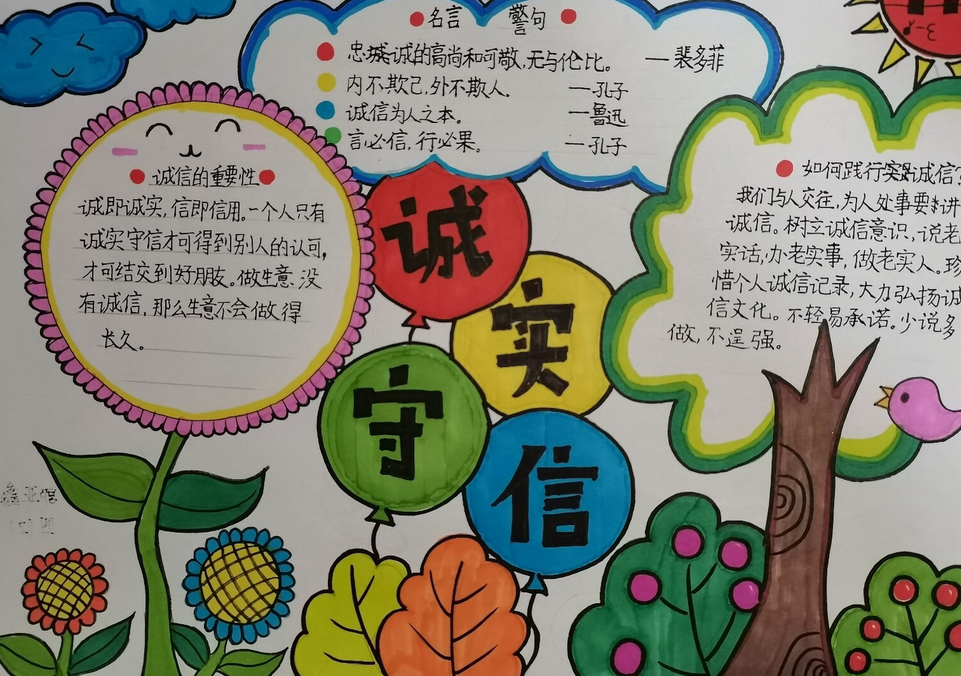 名言 警句
忠城诚的高尚和可敬,无与伦比。 —裴多菲
内不欺己,外不欺人。 —孔子
诚信为人之本。 —鲁迅
言必信,行必果。 —孔子
诚信的重要性
诚即诚实,信即信用。一个人只有
诚实守信才可得到别人的认可,
才可结交到好朋友。做生意,没
有诚信,那么生意不会做得
长久。
诚
实
守
信
如何践行实践诚信?
我们与人交往,为人处事要讲
诚信。树立诚信意识,说老
实话,办老实事,做老实人。珍
惜个人诚信记录,大力弘扬诚
信文化。不轻易承诺。少说多
做,不逞强。